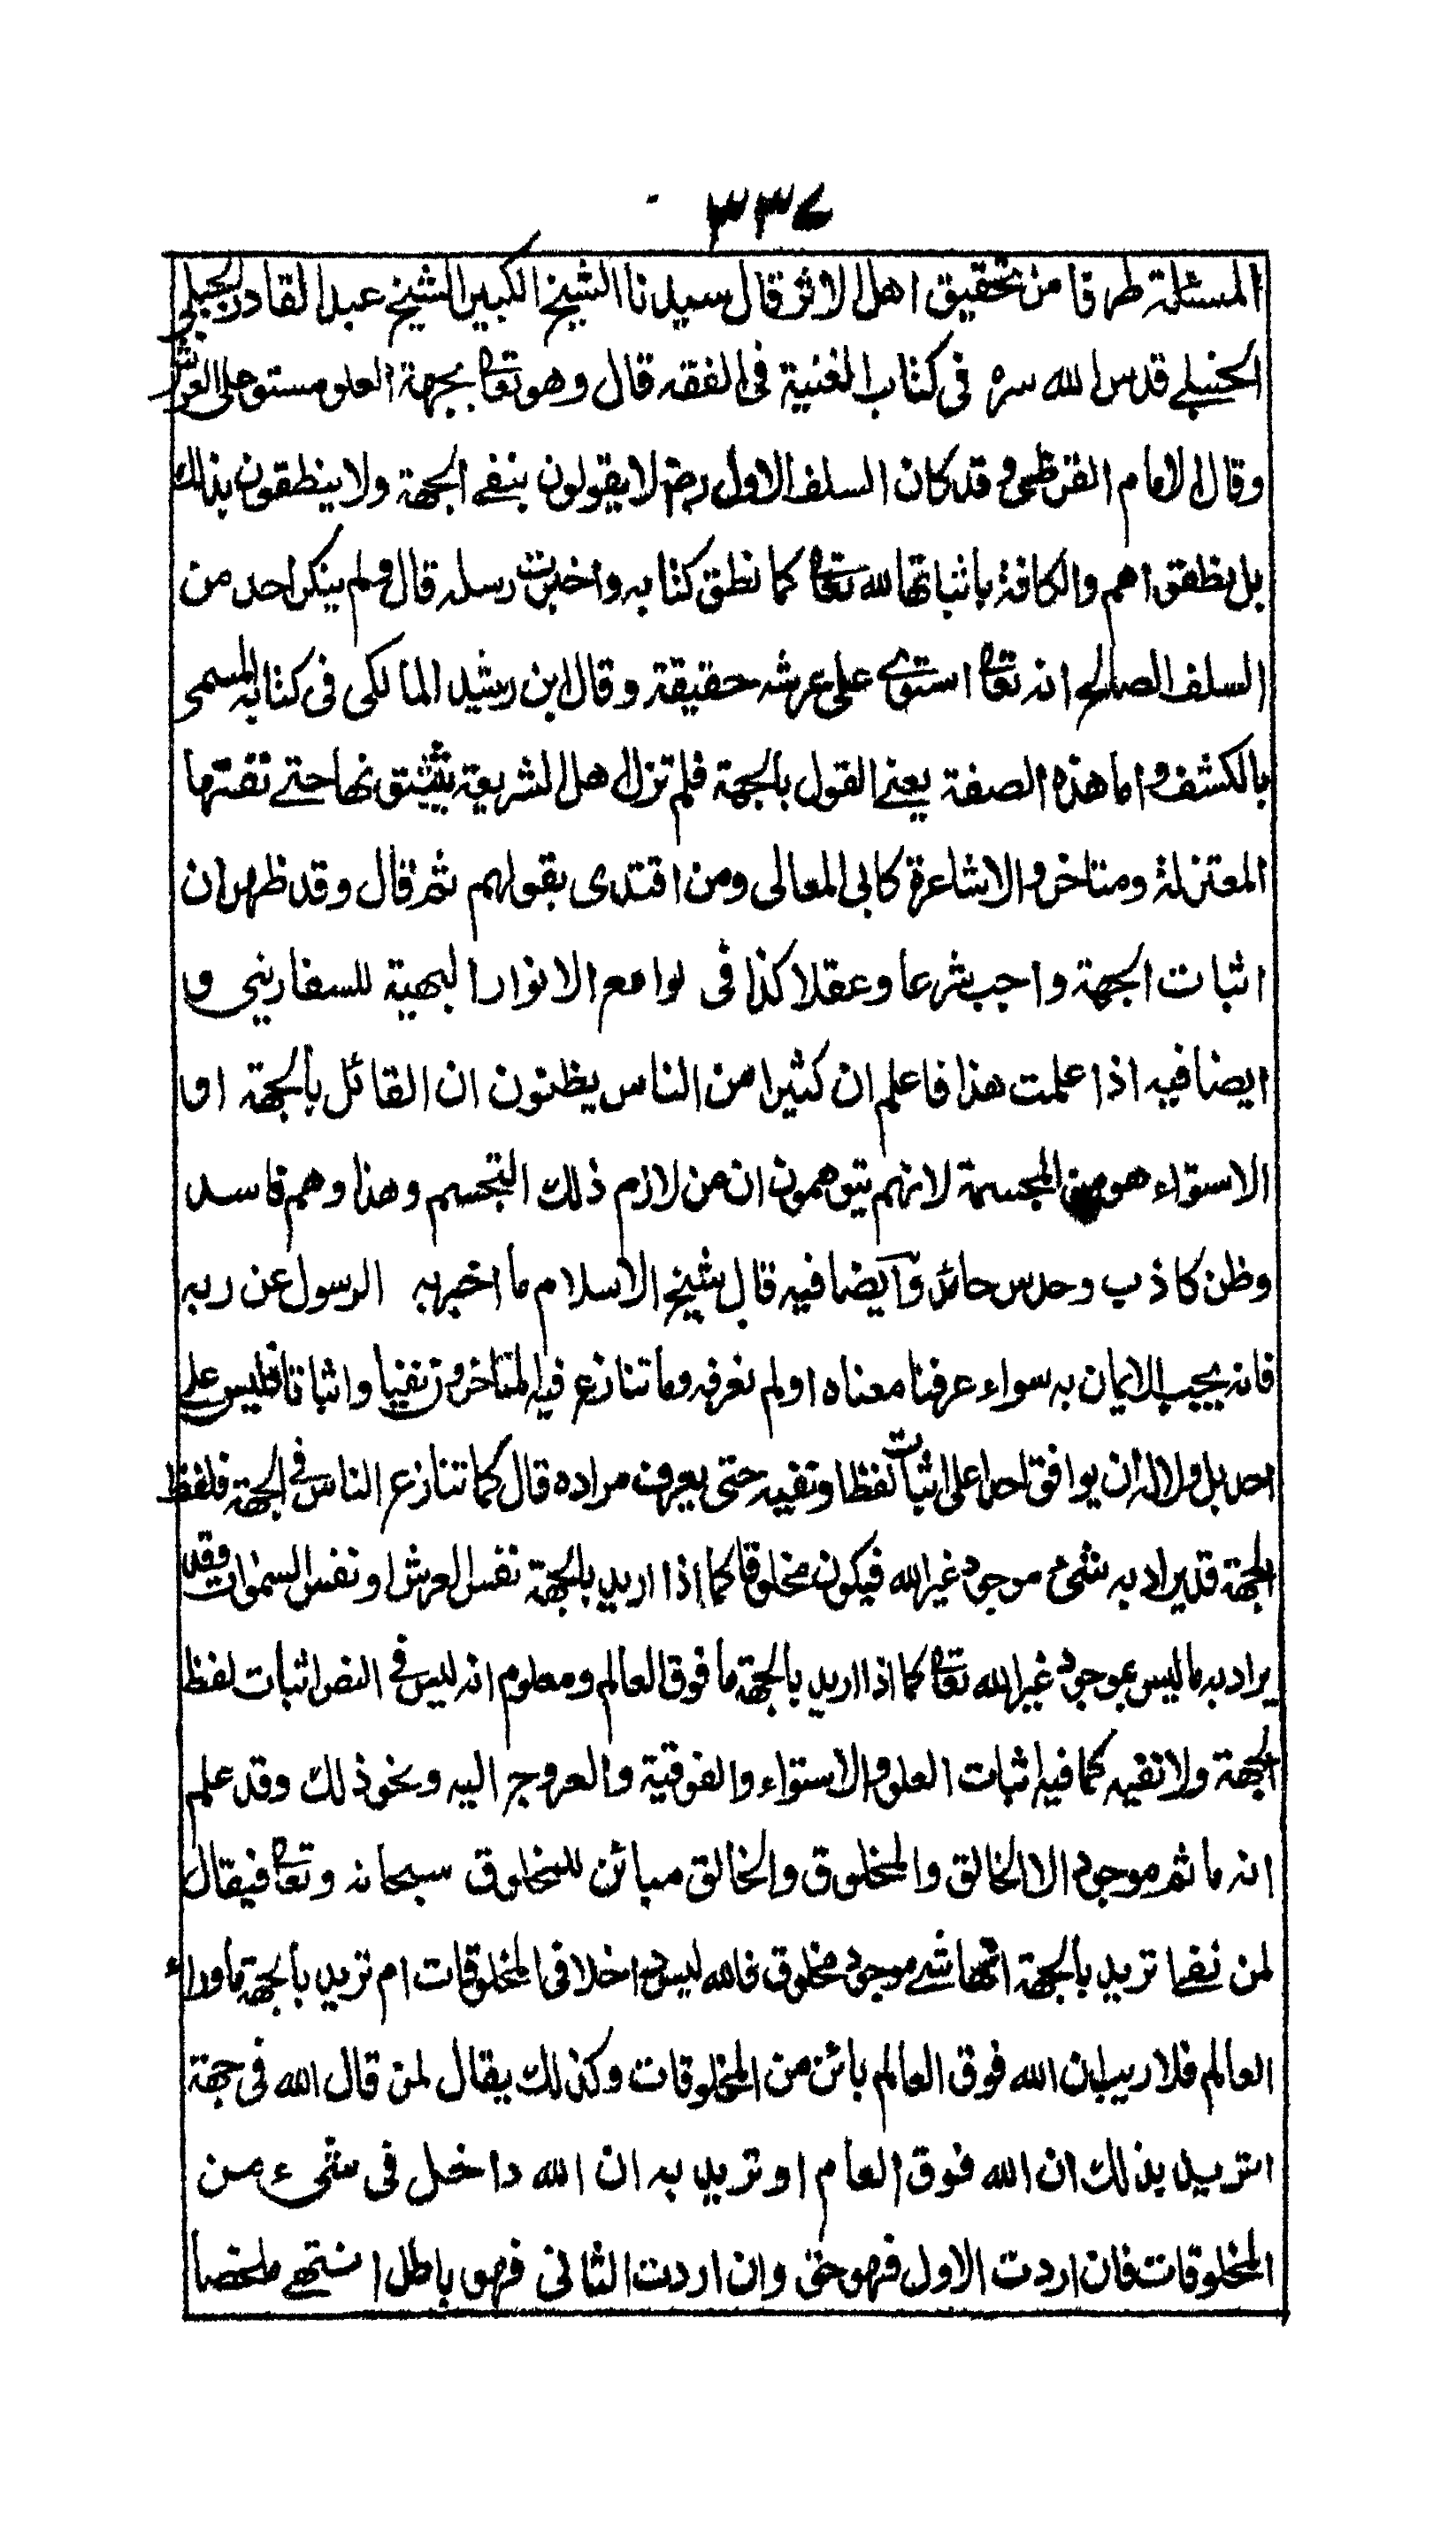 ٣٣٧
المسئلة طرقا من تحقيق اهل الاثر قال سيدنا الشيخ الكبير الشيخ عبد القادر الجيلي
الحنبلے قدس الله سره فى كتاب الغنية فى الفقه قال وهو تعالٰى بجهة العلو مستو على العرش
وقال الامام القرطبى وقد كان السلف الاول رضـ لا يقولون بنفے الجهة ولا ينطقون بذلك
بل نطقوا هم والكافة باثباتها لله تعالٰى كما نطق كتابه واخبرت رسله قال ولم ينكر احد من
السلف الصالح انه تعالٰى استوے على عرشه حقيقة وقال ابن رشيد المالكى فى كتابه المسمى
بالكشف واما هذه الصفة يعنے القول بالجهة فلم تزل اهل الشريعة يثبتونها حتے نفتها
المعتزلة ومتاخرو الاشاعرة كابى المعالى ومن اقتدى بقولهم ثم قال وقد ظهر ان
اثبات الجهة واجب شرعا وعقلا كذا فى لوامع الانوار البهية للسفارينى و
ايضا فيه اذا علمت هذا فاعلم ان كثيرا من الناس يظنون ان القائل بالجهة او
الاستواء هو من المجسمة لانهم يتوهمون ان من لازم ذلك التجسيم وهذا وهم فاسد
وظن كاذب وحدس حائد وايضا فيه قال شيخ الاسلام ما اخبر به الرسول عن ربه
فانه يجب الايمان به سواء عرفنا معناه اولم نعرفه وما تنازع فيه المتاخرون نفيا واثباتا فليس على
احد بل ولا له ان يوافق احدا على اثبات لفظا ونفيه حتى يعرف مراده قال كما تنازع الناس فى الجهة فلفظ
الجهة قد يراد به شىء موجود غير الله فيكون مخلوقا كما اذا اريد بالجهة نفس العرش او نفس السموات وقد
يراد به ما ليس بموجود غير الله تعالٰى كما اذا اريد بالجهة ما فوق العالم ومعلوم انه ليس فى النص اثبات لفظ
الجهة ولا نفيه كما فيه اثبات العلو والاستواء والفوقية والعروج اليه ونحو ذلك وقد علم
انه ما ثم موجود الا الخالق والمخلوق والخالق مبائن للمخلوق سبحانه وتعالٰى فيقال
لمن نفها تريد بالجهة انها شے موجود مخلوق فالله ليس داخلا فى المخلوقات ام تريد بالجهة ما وراء
العالم فلا ريب ان الله فوق العالم بائن من المخلوقات وكذلك يقال لمن قال الله فى جهة
اتريد بذلك ان الله فوق العام او تريد به ان الله داخل فى شىء من
المخلوقات فان اردت الاول فهو حق وان اردت الثانى فهو باطل انتهے ملخصا